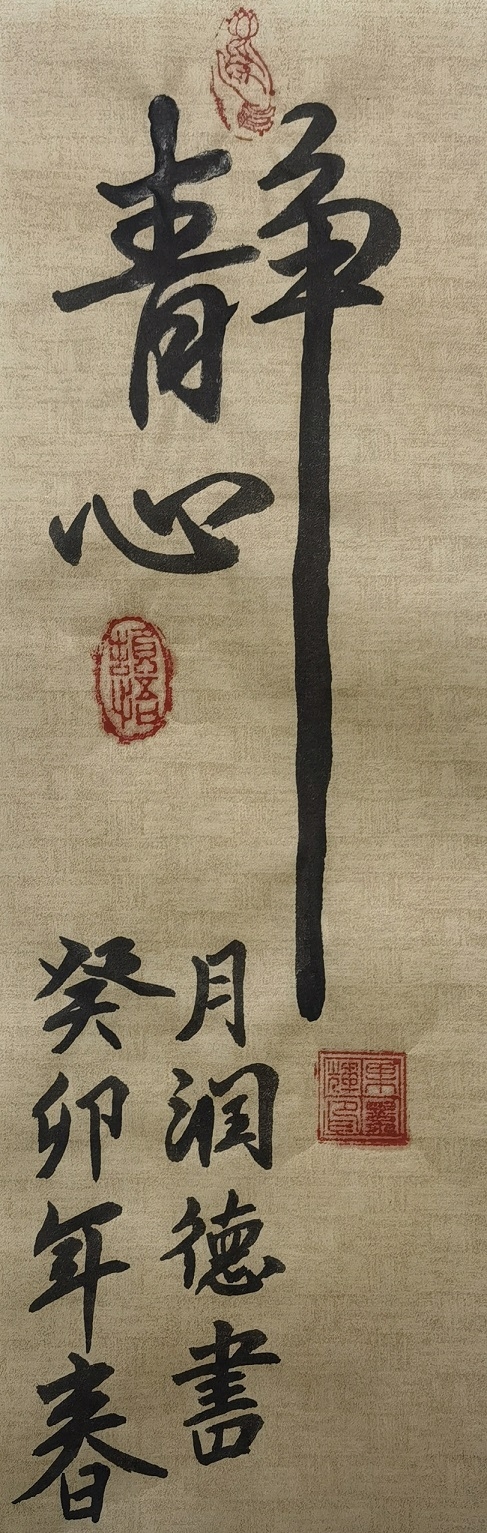 静心
月润德書
癸卯年春